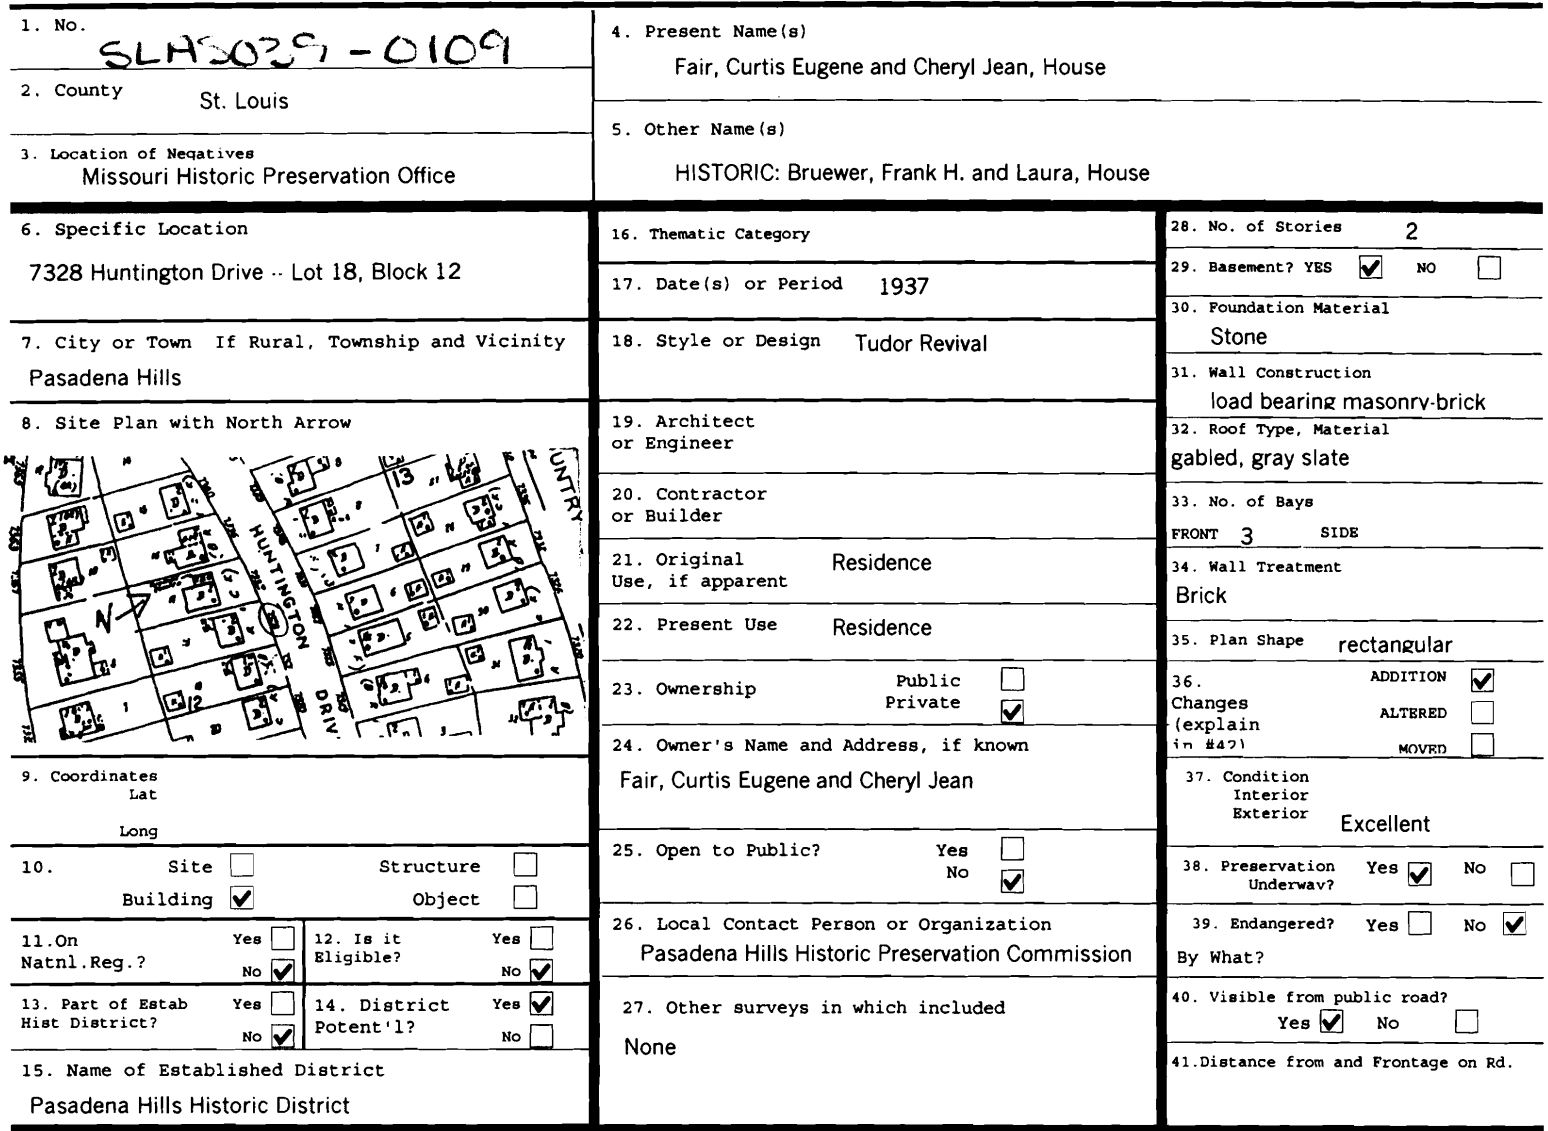 1. No.
SLAS039-0109
2. County
St. Louis
3. Location of Negatives
Missouri Historic Preservation Office
4. Present Name(s)
Fair, Curtis Eugene and Cheryl Jean, House
5. Other Name(s)
HISTORIC: Bruewer, Frank H. and Laura, House
6. Specific Location
7328 Huntington Drive -- Lot 18, Block 12
7. City or Town If Rural, Township and Vicinity
Pasadena Hills
8. Site Plan with North Arrow
HUNTINGTON
DRIV
UNTRY
13
12
N
9. Coordinates
Lat
Long
10. Site Structure
Building Object
11.On Yes
Natnl.Reg.? No
12. Is it Yes
Eligible? No
13. Part of Estab Yes
Hist District? No
14. District Yes
Potent'l? No
15. Name of Established District
Pasadena Hills Historic District
16. Thematic Category
17. Date(s) or Period 1937
18. Style or Design Tudor Revival
19. Architect
or Engineer
20. Contractor
or Builder
21. Original Residence
Use, if apparent
22. Present Use Residence
23. Ownership Public
Private
24. Owner's Name and Address, if known
Fair, Curtis Eugene and Cheryl Jean
25. Open to Public? Yes
No
26. Local Contact Person or Organization
Pasadena Hills Historic Preservation Commission
27. Other surveys in which included
None
28. No. of Stories 2
29. Basement? YES NO
30. Foundation Material
Stone
31. Wall Construction
load bearing masonry-brick
32. Roof Type, Material
gabled, gray slate
33. No. of Bays
FRONT 3 SIDE
34. Wall Treatment
Brick
35. Plan Shape rectangular
36. ADDITION
Changes ALTERED
(explain
in #42) MOVED
37. Condition
Interior
Exterior Excellent
38. Preservation Yes No
Underway?
39. Endangered? Yes No
By What?
40. Visible from public road?
Yes No
41.Distance from and Frontage on Rd.